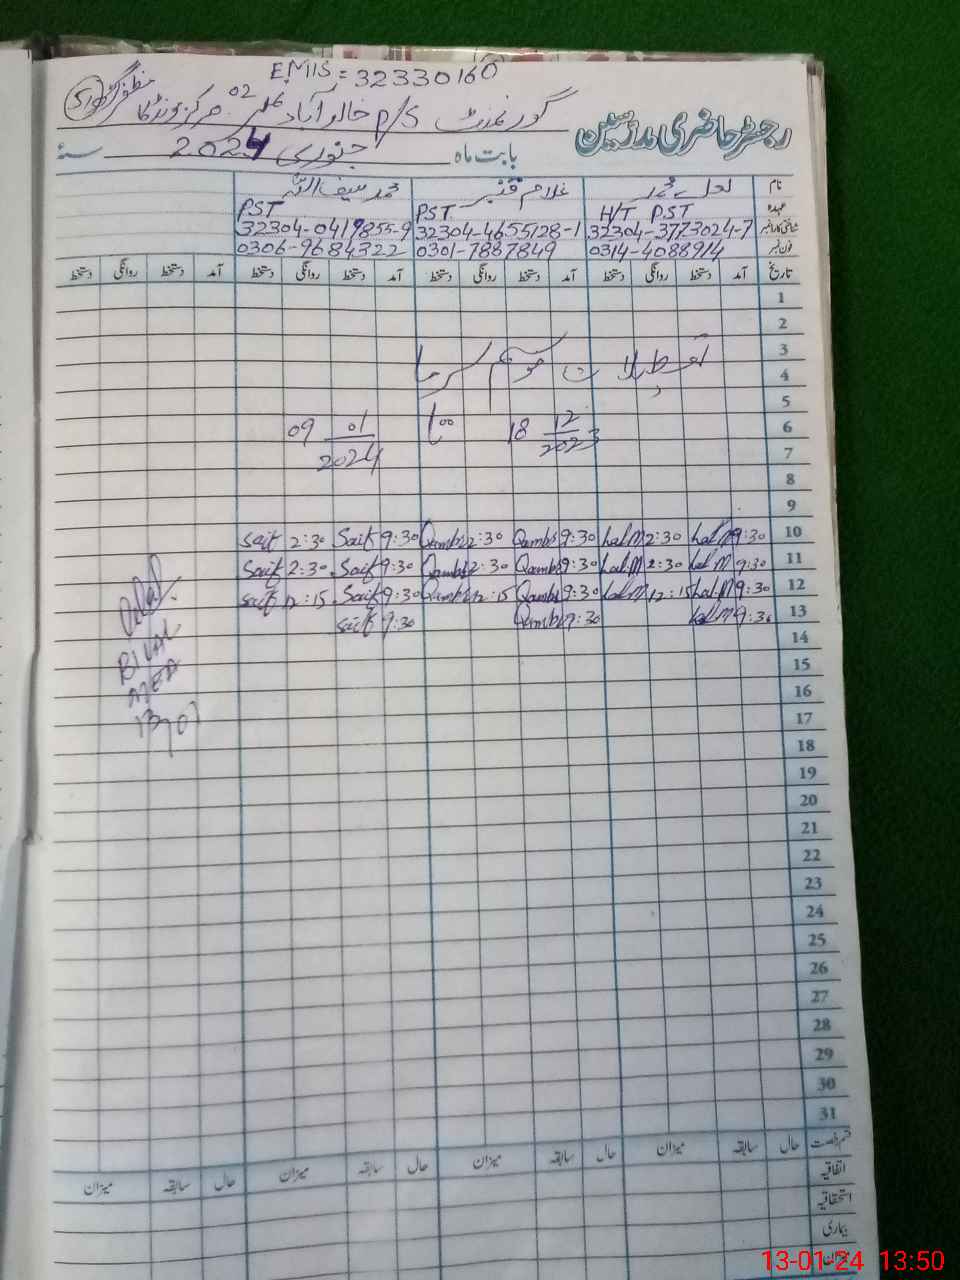 EMIS = 32330160
گورنمنٹ P/S خالد آباد
رجسٹر حاضری مدرسین
بابت ماہ جنوری 2024 سنہ
نام لعل محمد غلام قنبر محمد سیف اللہ
عہدہ H/T PST PST PST
شناختی کارڈ نمبر 32304-3773024-7 32304-4655128-1 32304-0419855-9
فون نمبر 0314-4088914 0301-7887849 0306-9684322
تاریخ آمد دستخط روانگی دستخط آمد دستخط روانگی دستخط آمد دستخط روانگی دستخط آمد دستخط روانگی دستخط
1
2
3 تعطیلات موسم سرما
4
5
6 18 12/2023 تا 09 01/2024
7
8
9
10 9:30 Lal M 2:30 Lal M 9:30 Qambr 2:30 Qambr 9:30 Saif 2:30 Saif
11 9:30 Lal M 2:30 Lal M 9:30 Qambr 2:30 Qambr 9:30 Saif 2:30 Saif
12 9:30 Lal M 12:15 Lal M 9:30 Qambr 12:15 Qambr 9:30 Saif 12:15 Saif
13 9:30 Lal M 9:30 Qambr 9:30 Saif
14
15
16
17
18
19
20
21
22
23
24
25
26
27
28
29
30
31
قسم رخصت حال سابقہ میزان حال سابقہ میزان حال سابقہ میزان حال سابقہ میزان
اتفاقیہ
استحقاقیہ
بیماری
میزان
BILAL
13-01-24 13:50